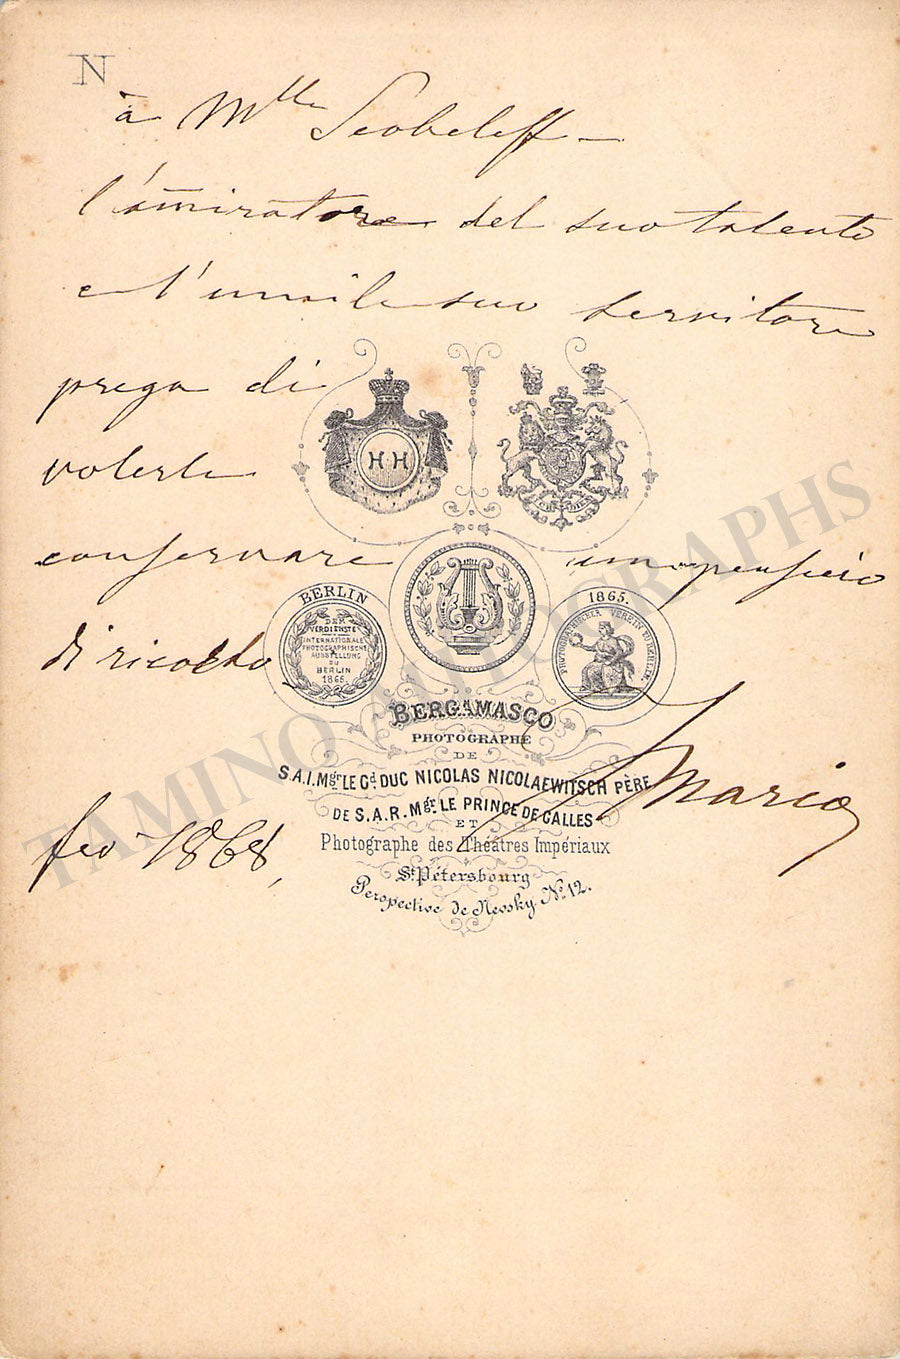 N
à Mlle Scobeleff –
l'amiratore del suo talento
e l'umile suo servitore
prega di
volerle
conservare un pensiero
di ricordo
Mario
fev 1868,
H H
BERLIN
DEM
VERDIENSTE
INTERNATIONALE
PHOTOGRAPHISCHE
AUSSTELLUNG
ZU
BERLIN
1865.
1865.
PHOTOGRAPHISCHER VEREIN ZU BERLIN.
BERGAMASCO
PHOTOGRAPHE
DE
S.A.I. Mgr LE Gd DUC NICOLAS NICOLAEWITSCH PÈRE
DE S.A.R. Mgr LE PRINCE DE GALLES
ET
Photographe des Théâtres Impériaux
St Pétersbourg
Perspective de Nevsky. No 12.
TAMINO AUTOGRAPHS